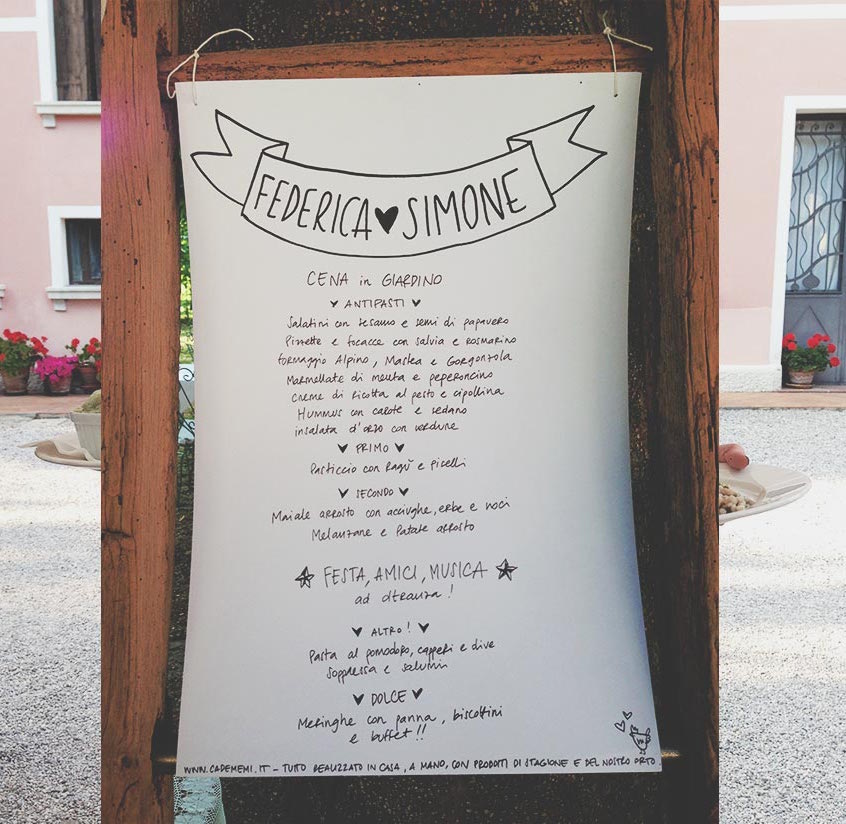 FEDERICA ♥ SIMONE
CENA in GIARDINO
♥ ANTIPASTI ♥
Salatini con sesamo e semi di papavero
Pizzette e focacce con salvia e rosmarino
formaggio Alpino, Mastea e Gorgonzola
Marmellate di menta e peperoncino
creme di ricotta al pesto e cipollina
Hummus con carote e sedano
insalata d'orzo con verdure
♥ PRIMO ♥
Pasticcio con Ragù e piselli
♥ SECONDO ♥
Maiale arrosto con acciughe, erbe e noci
Melanzane e Patate arrosto
★ FESTA, AMICI, MUSICA ★
ad oltranza!
♥ ALTRO! ♥
Pasta al pomodoro, capperi e olive
Soppressa e salumi
♥ DOLCE ♥
Meringhe con panna, biscottini
e buffet!!
WWW.CADEMEMI.IT - TUTTO REALIZZATO IN CASA, A MANO, CON PRODOTTI DI STAGIONE E DEL NOSTRO ORTO.